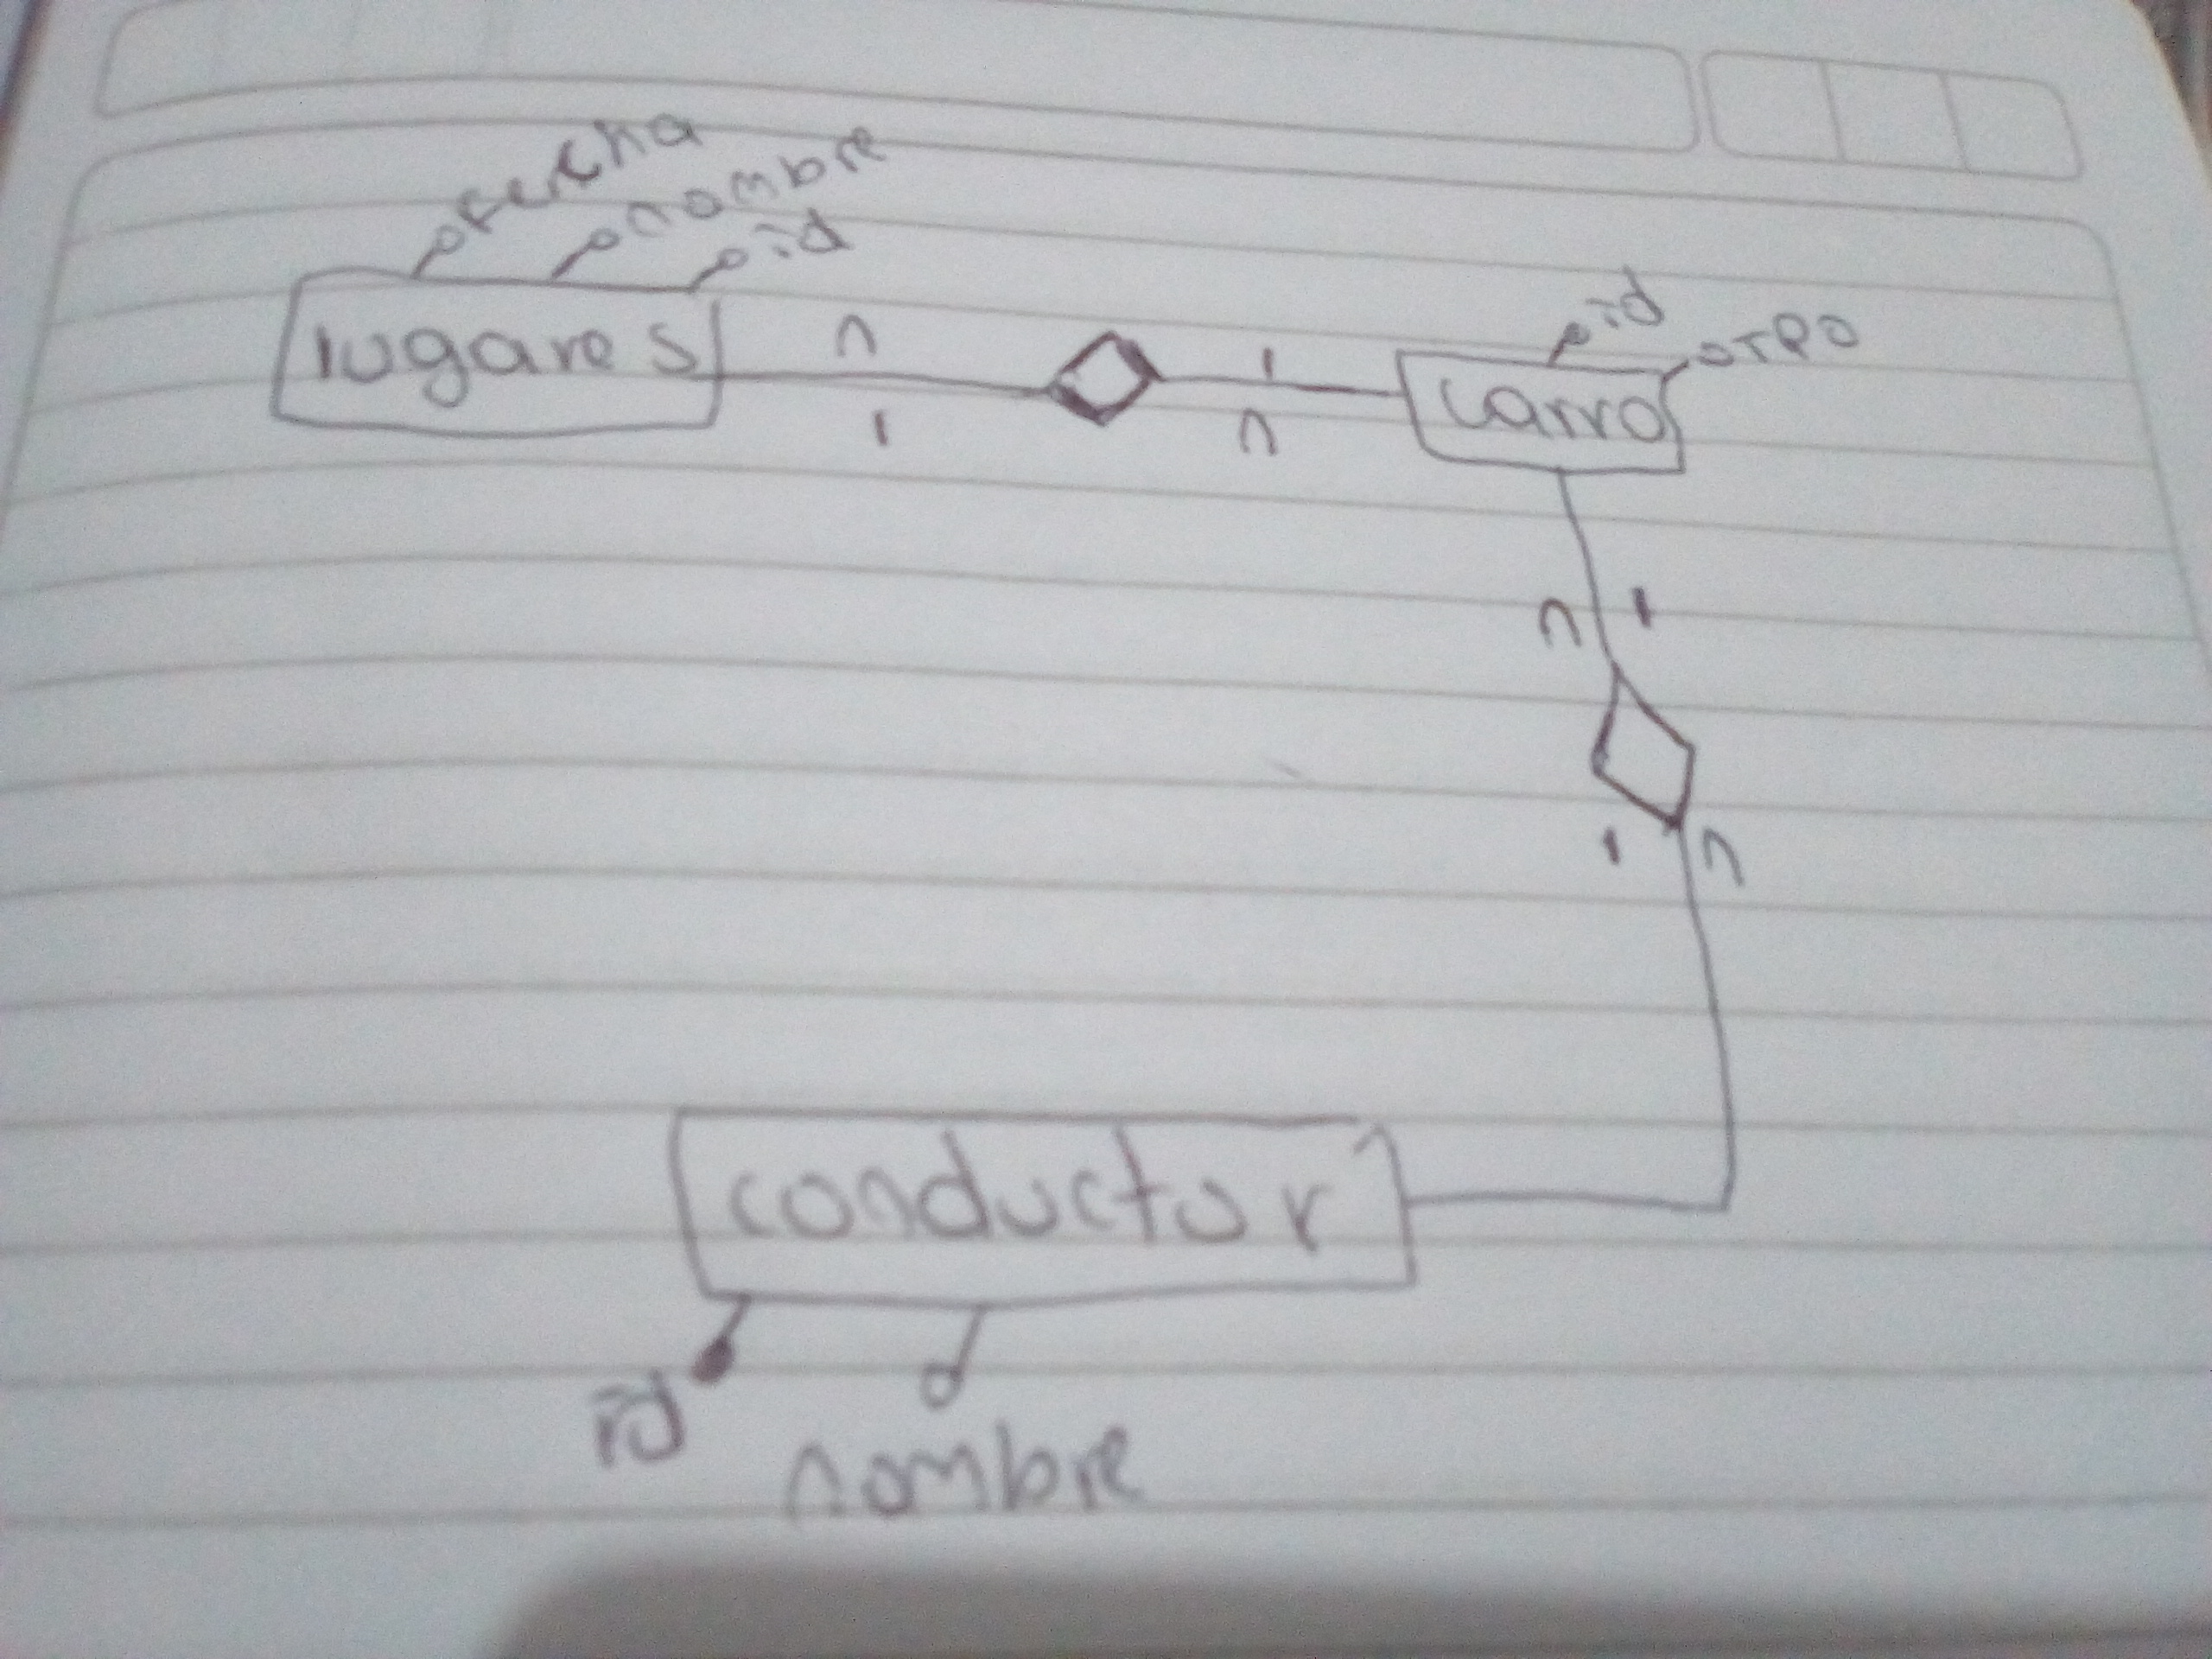 fercha
nombre
id
lugares
n
1
1
n
id
TPO
carro
n 1
1 n
conductor
id
nombre